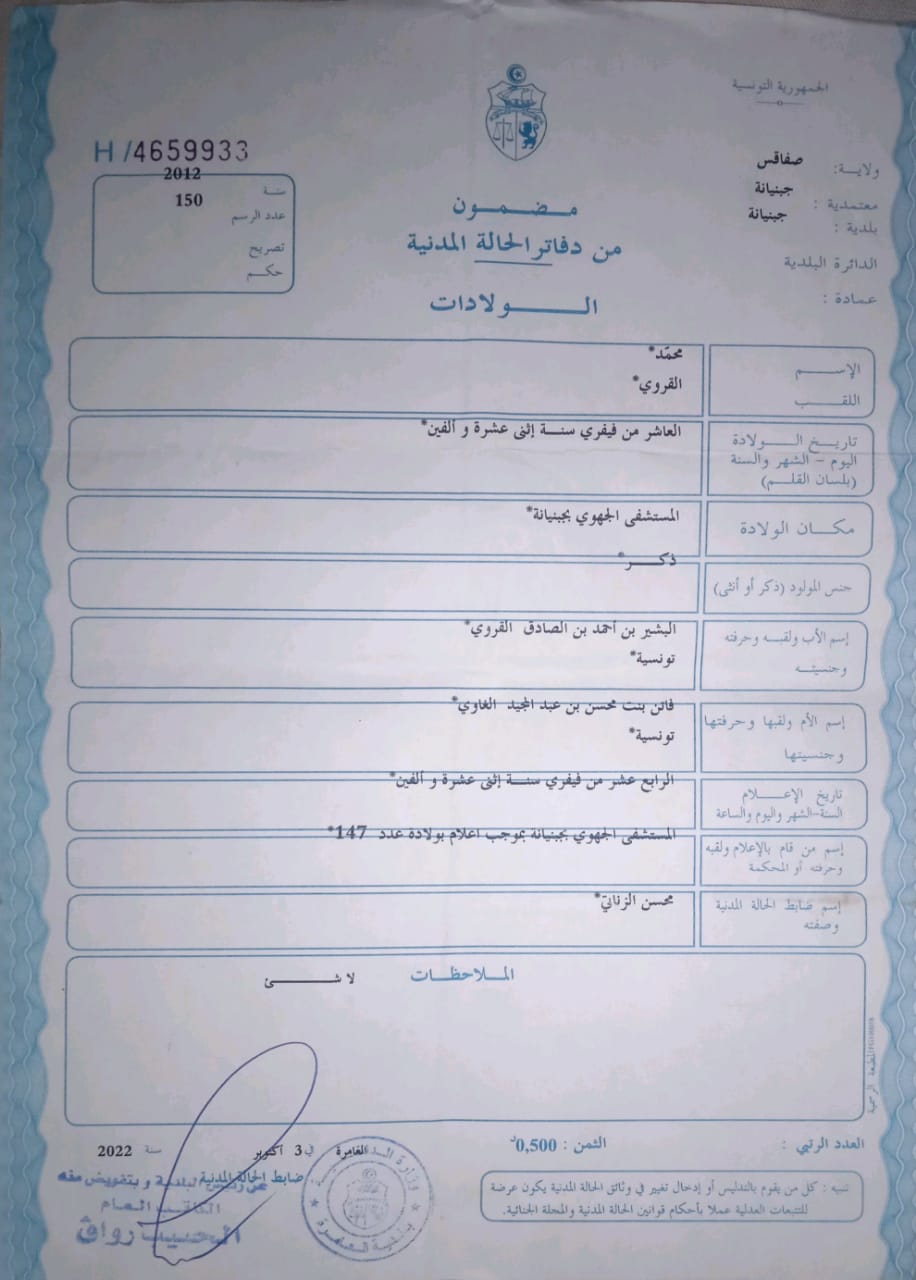 الجمهورية التونسية
ولاية: صفاقس
معتمدية : جبنيانة
بلدية : جبنيانة
الدائرة البلدية
عمادة :
H /4659933
سنة 2012
عدد الرسم 150
تصريح
حكم
مضمون
من دفاتر الحالة المدنية
الولادات
الإسم محمّد*
اللقب القروي*
تاريخ الولادة
اليوم – الشهر والسنة
(بلسان القلم)
العاشر من فيفري سنة إثنى عشرة و ألفين*
مكان الولادة
المستشفى الجهوي بجبنيانة*
جنس المولود (ذكر أو أنثى)
ذكر*
إسم الأب ولقبه وحرفته
وجنسيته
البشير بن أحمد بن الصادق القروي*
تونسية*
إسم الأم ولقبها وحرفتها
وجنسيتها
فاتن بنت محسن بن عبد المجيد الغاوي*
تونسية*
تاريخ الإعلام
السنة-الشهر واليوم والساعة
الرابع عشر من فيفري سنة إثنى عشرة و ألفين*
إسم من قام بالإعلام ولقبه
وحرفته أو المحكمة
المستشفى الجهوي بجبنيانة بموجب اعلام بولادة عدد 147*
إسم ضابط الحالة المدنية
وصفته
محسن الزناتي*
الملاحظات
لا شئ
العدد الرتبي :
الثمن : 0,500د
تنبيه : كل من يقوم بالتدليس أو إدخال تغيير في وثائق الحالة المدنية يكون عرضة
للتتبعات العدلية عملا بأحكام قوانين الحالة المدنية والمجلة الجنائية.
العامرة في 3 أكتوبر سنة 2022
ضابط الحالة المدنية
عن رئيس البلدية و بتفويض منه
الكاتب العام
رواق
بلدية العامرة
المطبعة الرسمية